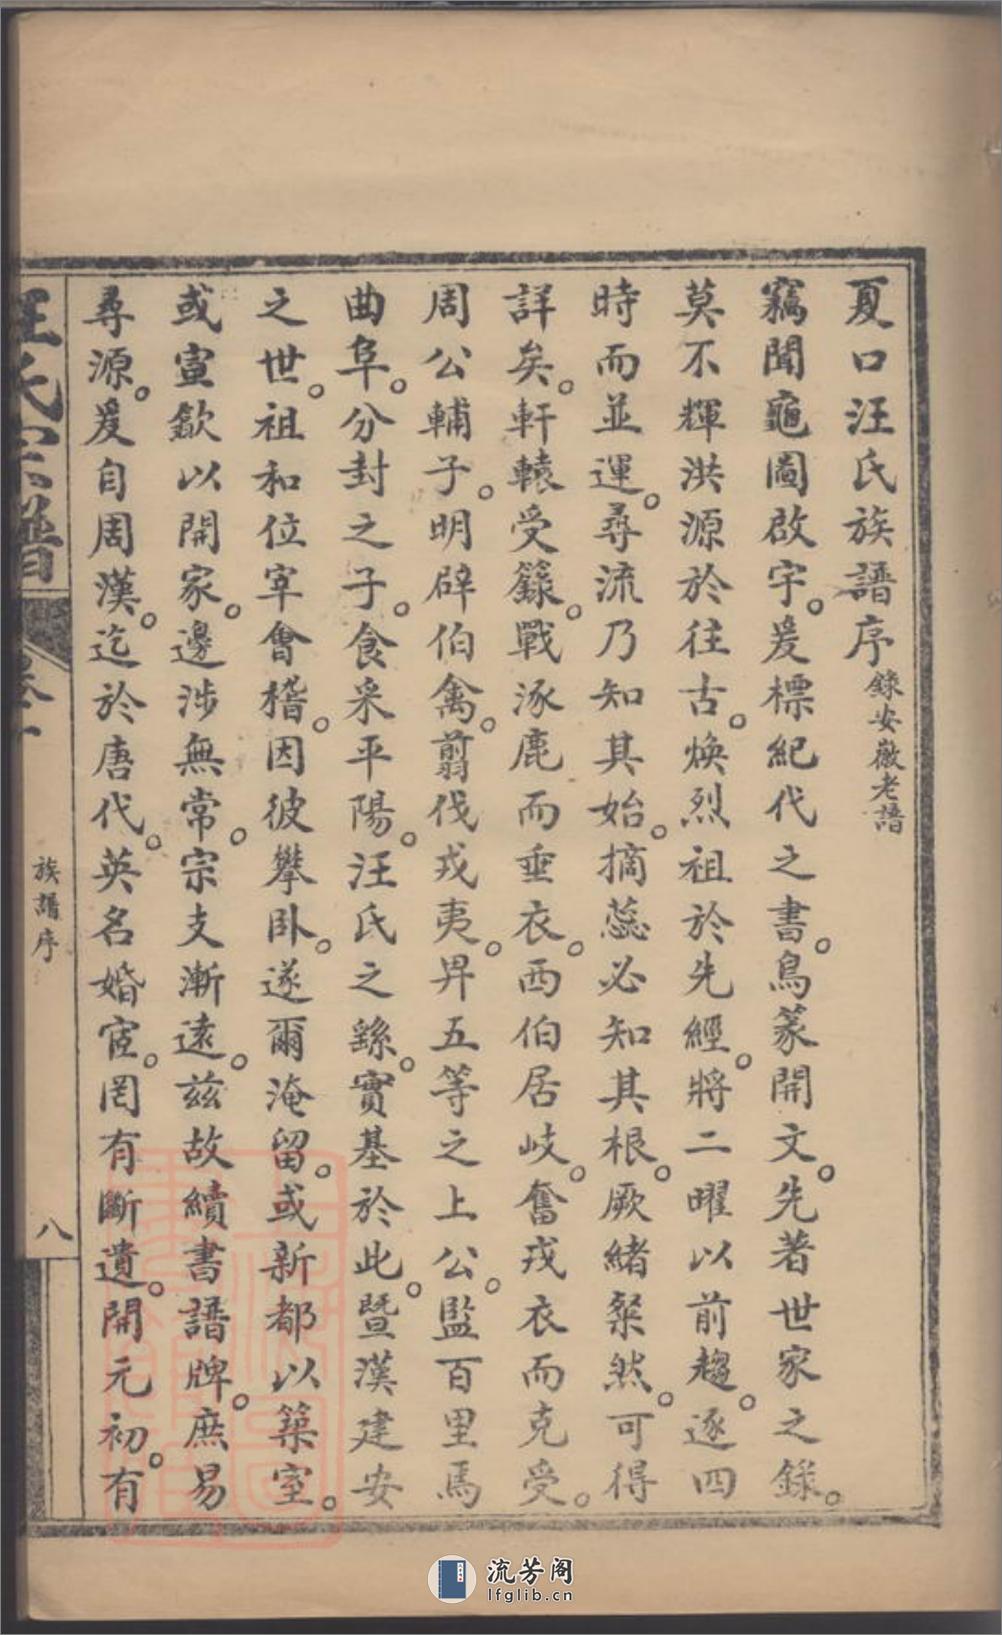 夏口汪氏族譜序 錄安徽老譜
竊聞龜圖啟宇。爰標紀代之書。鳥篆開文。先著世家之錄。
莫不輝洪源於往古。煥烈祖於先經。將二曜以前趨。逐四
時而並運。尋流乃知其始。摘蕊必知其根。厥緒粲然。可得
詳矣。軒轅受籙。戰涿鹿而垂衣。西伯居岐。奮戎衣而克受。
周公輔子。明辟伯禽。翦伐戎夷。昇五等之上公。監百里焉
曲阜。分封之子。食采平陽。汪氏之繇。實基於此。暨漢建安
之世。祖和位宰會稽。因彼攀卧。遂爾淹留。或新都以築室。
或宣歙以開家。邊涉無常。宗支漸遠。兹故續書譜牌。庶易
尋源。爰自周漢。迄於唐代。英名婚宦。罔有斷遺。開元初。有
汪氏宗譜
卷一
族譜序
八
流芳阁
lfglib.cn